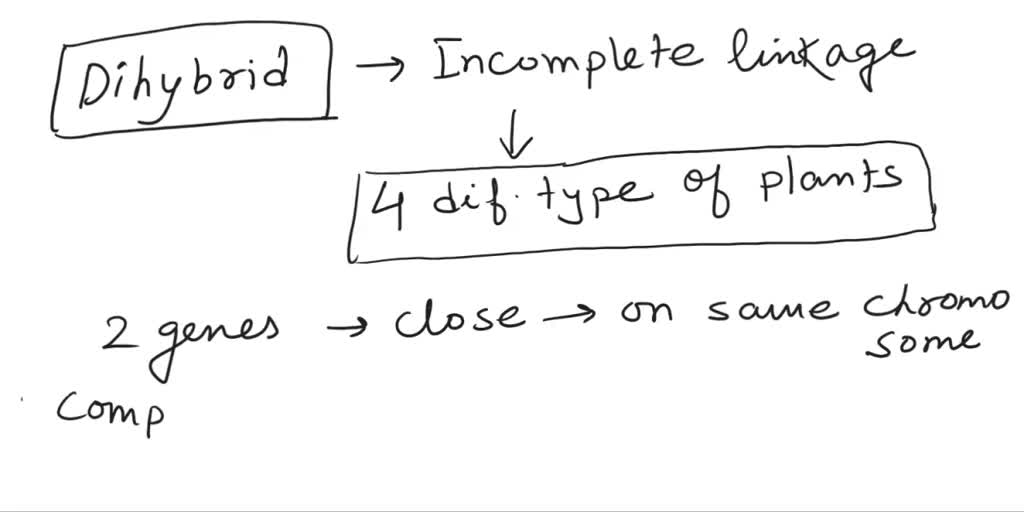 Dihybrid → Incomplete linkage
↓
4 dif. type of plants
2 genes → close → on same chromo
some
comp